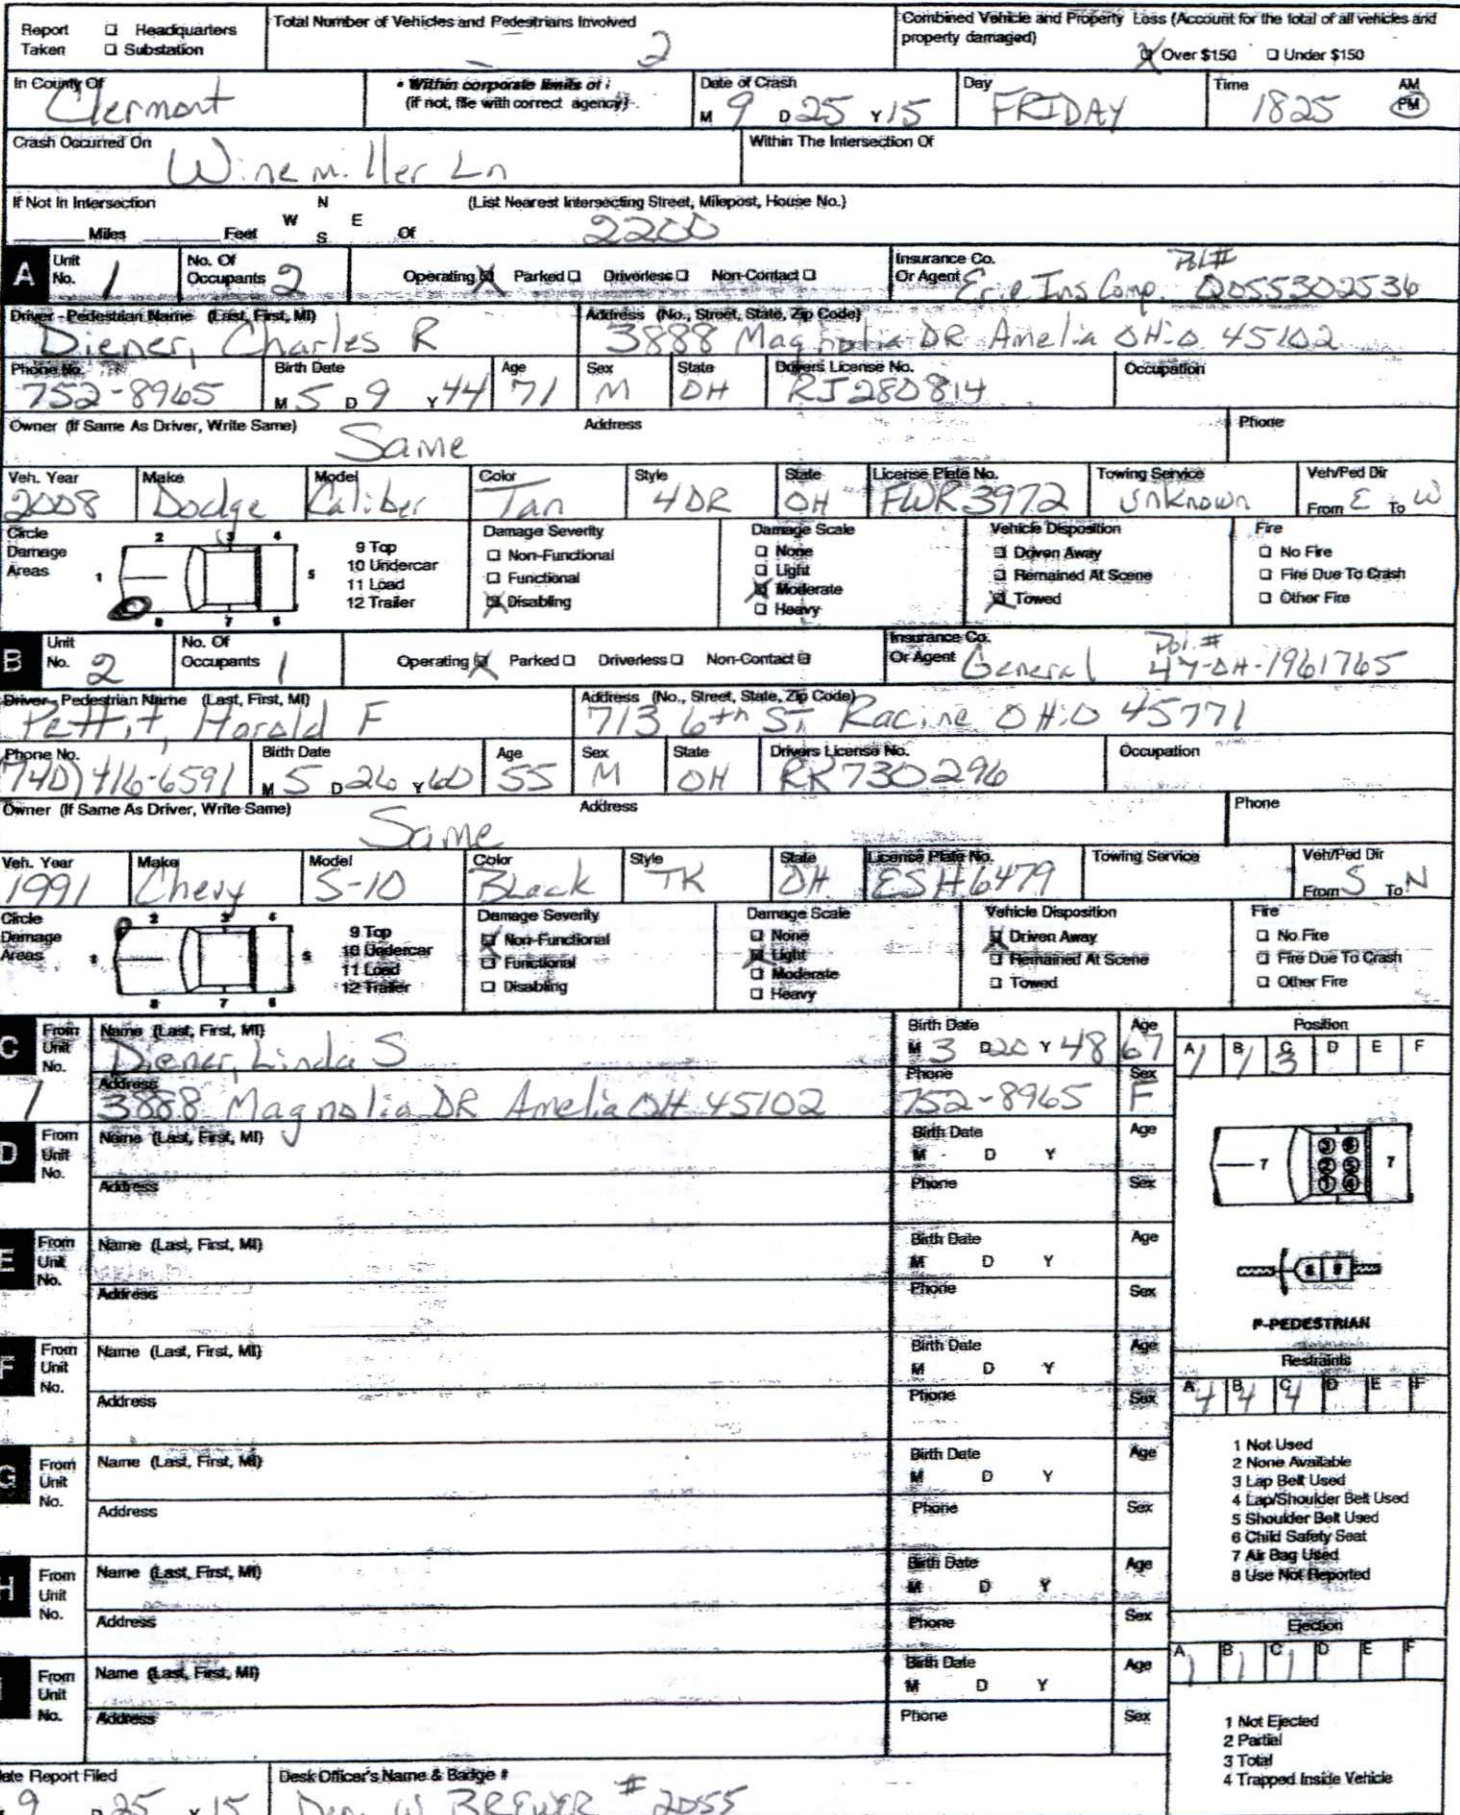 Report Taken ☐ Headquarters ☐ Substation
Total Number of Vehicles and Pedestrians Involved 2
Combined Vehicle and Property Loss (Account for the total of all vehicles and property damaged) ☒ Over $150 ☐ Under $150
In County Of Clermont
• Within corporate limits of : (if not, file with correct agency)
Date of Crash M 9 D 25 Y 15
Day FRIDAY
Time 1825 AM PM
Crash Occurred On Winemiller Ln
Within The Intersection Of
If Not In Intersection
Miles Feet N W E S Of (List Nearest Intersecting Street, Milepost, House No.) 2200
A Unit No. 1 No. Of Occupants 2 Operating ☒ Parked ☐ Driverless ☐ Non-Contact ☐
Insurance Co. Or Agent Erie Ins Comp. Pol# Q055302536
Driver - Pedestrian Name (Last, First, MI) Diener, Charles R
Address (No., Street, State, Zip Code) 3888 Magnolia DR Amelia OHiO 45102
Phone No. 752-8965
Birth Date M 5 D 9 Y 44
Age 71
Sex M
State OH
Drivers License No. RJ280814
Occupation
Owner (If Same As Driver, Write Same) Same
Address
Phone
Veh. Year 2008
Make Dodge
Model Caliber
Color Tan
Style 4DR
State OH
License Plate No. FWR3972
Towing Service Unknown
Veh/Ped Dir From E To W
Circle Damage Areas
1 2 3 4 5 6 7 8
9 Top
10 Undercar
11 Load
12 Trailer
Damage Severity
☐ Non-Functional
☐ Functional
☒ Disabling
Damage Scale
☐ None
☐ Light
☒ Moderate
☐ Heavy
Vehicle Disposition
☐ Driven Away
☐ Remained At Scene
☒ Towed
Fire
☐ No Fire
☐ Fire Due To Crash
☐ Other Fire
B Unit No. 2 No. Of Occupants 1 Operating ☒ Parked ☐ Driverless ☐ Non-Contact ☐
Insurance Co. Or Agent General Pol.# 47-OH-1961765
Driver - Pedestrian Name (Last, First, MI) Pettit, Harold F
Address (No., Street, State, Zip Code) 713 6th St. Racine OHiO 45771
Phone No. 740) 416-6591
Birth Date M 5 D 26 Y 60
Age 55
Sex M
State OH
Drivers License No. RR730296
Occupation
Owner (If Same As Driver, Write Same) Same
Address
Phone
Veh. Year 1991
Make Chevy
Model S-10
Color Black
Style TK
State OH
License Plate No. ESH6479
Towing Service
Veh/Ped Dir From S To N
Circle Damage Areas
2 3 4 5 6 7 8
9 Top
10 Undercar
11 Load
12 Trailer
Damage Severity
☒ Non-Functional
☐ Functional
☐ Disabling
Damage Scale
☐ None
☒ Light
☐ Moderate
☐ Heavy
Vehicle Disposition
☒ Driven Away
☐ Remained At Scene
☐ Towed
Fire
☐ No Fire
☐ Fire Due To Crash
☐ Other Fire
C From Unit No. 1
Name (Last, First, MI) Diener, Linda S
Birth Date M 3 D 20 Y 48
Age 67
Address 3888 Magnolia DR Amelia OH 45102
Phone 752-8965
Sex F
D From Unit No.
Name (Last, First, MI)
Birth Date M D Y
Age
Address
Phone
Sex
E From Unit No.
Name (Last, First, MI)
Birth Date M D Y
Age
Address
Phone
Sex
F From Unit No.
Name (Last, First, MI)
Birth Date M D Y
Age
Address
Phone
Sex
G From Unit No.
Name (Last, First, MI)
Birth Date M D Y
Age
Address
Phone
Sex
H From Unit No.
Name (Last, First, MI)
Birth Date M D Y
Age
Address
Phone
Sex
From Unit No.
Name (Last, First, MI)
Birth Date M D Y
Age
Address
Phone
Sex
Position
A 1 B 1 C 3 D E F
7 3 6 2 5 1 4 7
P-PEDESTRIAN
Restraints
A 4 B 4 C 4 D E F
1 Not Used
2 None Available
3 Lap Belt Used
4 Lap/Shoulder Belt Used
5 Shoulder Belt Used
6 Child Safety Seat
7 Air Bag Used
8 Use Not Reported
Ejection
A 1 B 1 C 1 D E F
1 Not Ejected
2 Partial
3 Total
4 Trapped Inside Vehicle
ate Report Filed 9 D 25 Y 15
Desk Officer's Name & Badge # Dep. W BREWER #2055